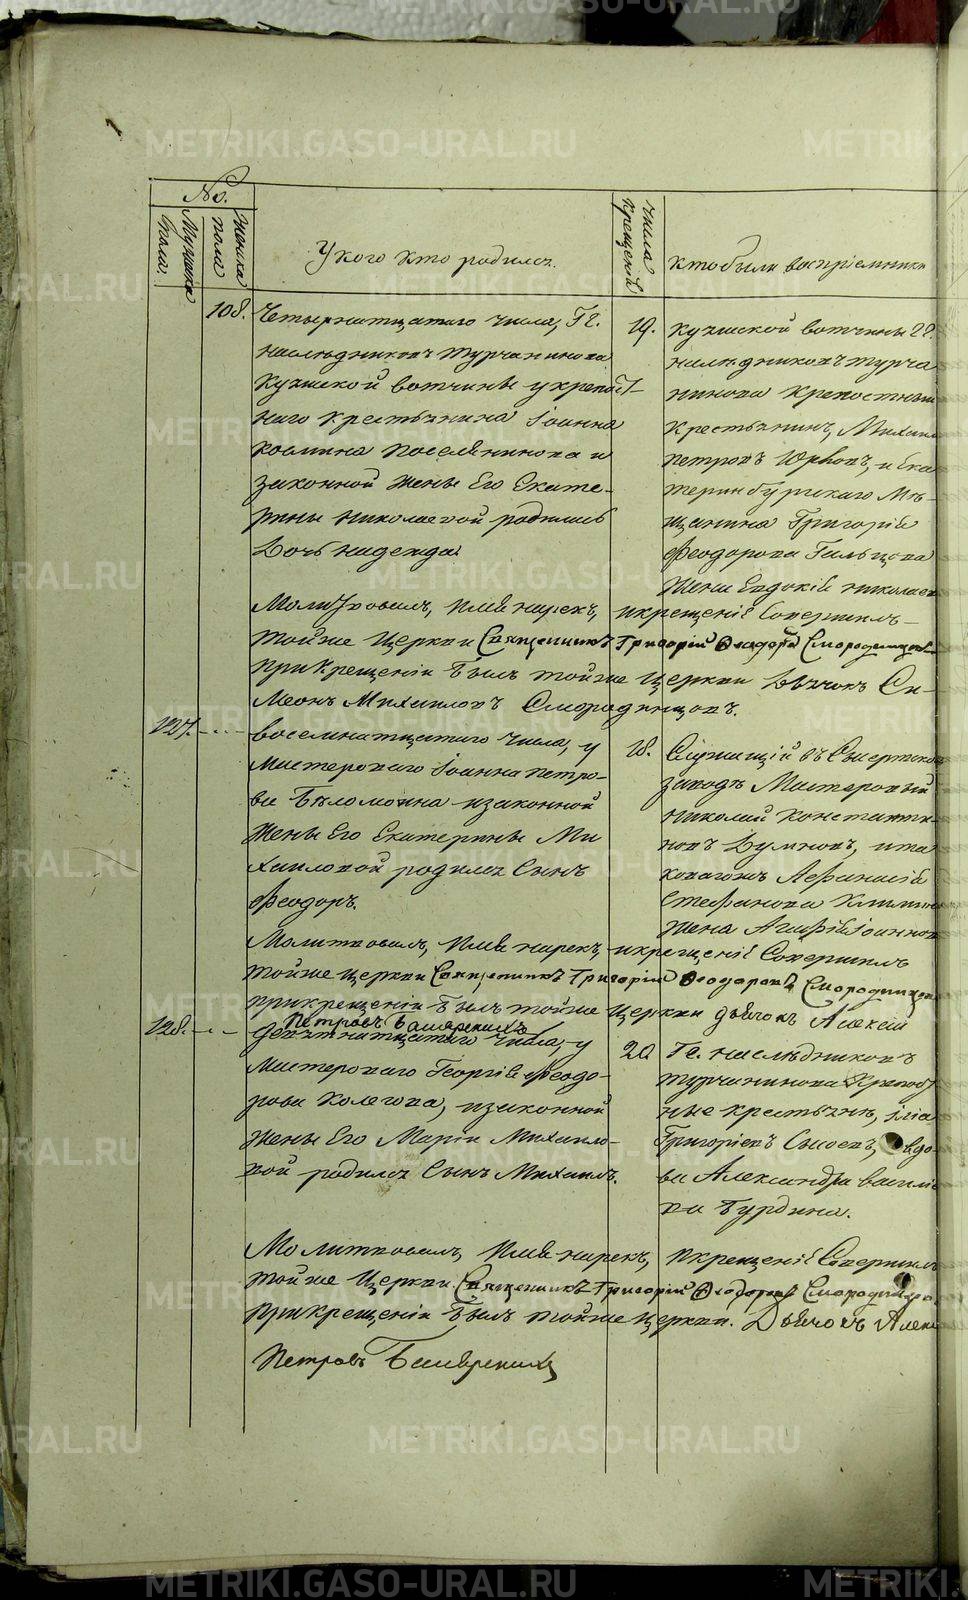 METRIKI.GASO-URAL.RU
№.
Мужеска пола.
Женска пола
У кого кто родился.
Числа крещенія
Кто были воспріемники
108.
Четырнатцатаго числа, Гг.
наследниковъ Турчанинова
Кухшской вотчины у крепост-
наго крестьянина Іоанна
Козмина Поселянинова и
законной жены Его Екате-
рины Николаевой родилась
Дочь надежда.
19.
Кухшской вотчины Гг.
наследниковъ Турча
нинова Крепостный
крестьянинъ, Михаил
Петровъ Юрьевъ, и Ека
теринбургскаго Мѣ-
щанина Григорія
Феодорова Гальцова
Жена Евдокія Николаев
Молитвовалъ, Имя нарекъ, и крещеніе Совершилъ
тойже Церкви Священникъ Григорій Феодоровъ Смородинцов
При Крещеніи былъ тойже Церкви Дьячокъ Си-
меонъ Михаиловъ Смородинцовъ.
127.
восемнатцатаго числа, у
Мастероваго Іоанна Петро-
ва Беломоина и законной
Жены Его Екатерины Ми
хаиловой родился Сынъ
Феодоръ.
18.
Служащій въ Сысертско
заводѣ Мастеровый
Николай Константи-
новъ Думновъ, и та
ковагожъ Афанасія
Стефанова
Жена Агафія Іоаннов
Молитвовалъ, Имя нарекъ, и крещеніе Совершилъ
тойже Церкви Священникъ Григорій Феодоровъ Смородинцов
При крещеніи былъ тойже Церкви дьячокъ Алексій
Петровъ Башерскихъ
128.
Девятнатцатаго числа, у
Мастероваго Георгія Феодо-
рова Колегова, и законной
Жены Его Маріи Михаило-
вой родился Сынъ Михаилъ.
20
Гг. наследниковъ
Турчанинова Крепост
ные крестьяне, Илія
Григоріевъ Сысоевъ, вдо-
ва Александра Василіе
ва Бурдина.
Молитвовалъ, Имя нарекъ, и крещеніе Совершилъ
тойже Церкви Священникъ Григорій Феодоровъ Смородинцо
При крещеніи былъ тойже Церкви. Дьячокъ Алекс
Петровъ Башерскихъ